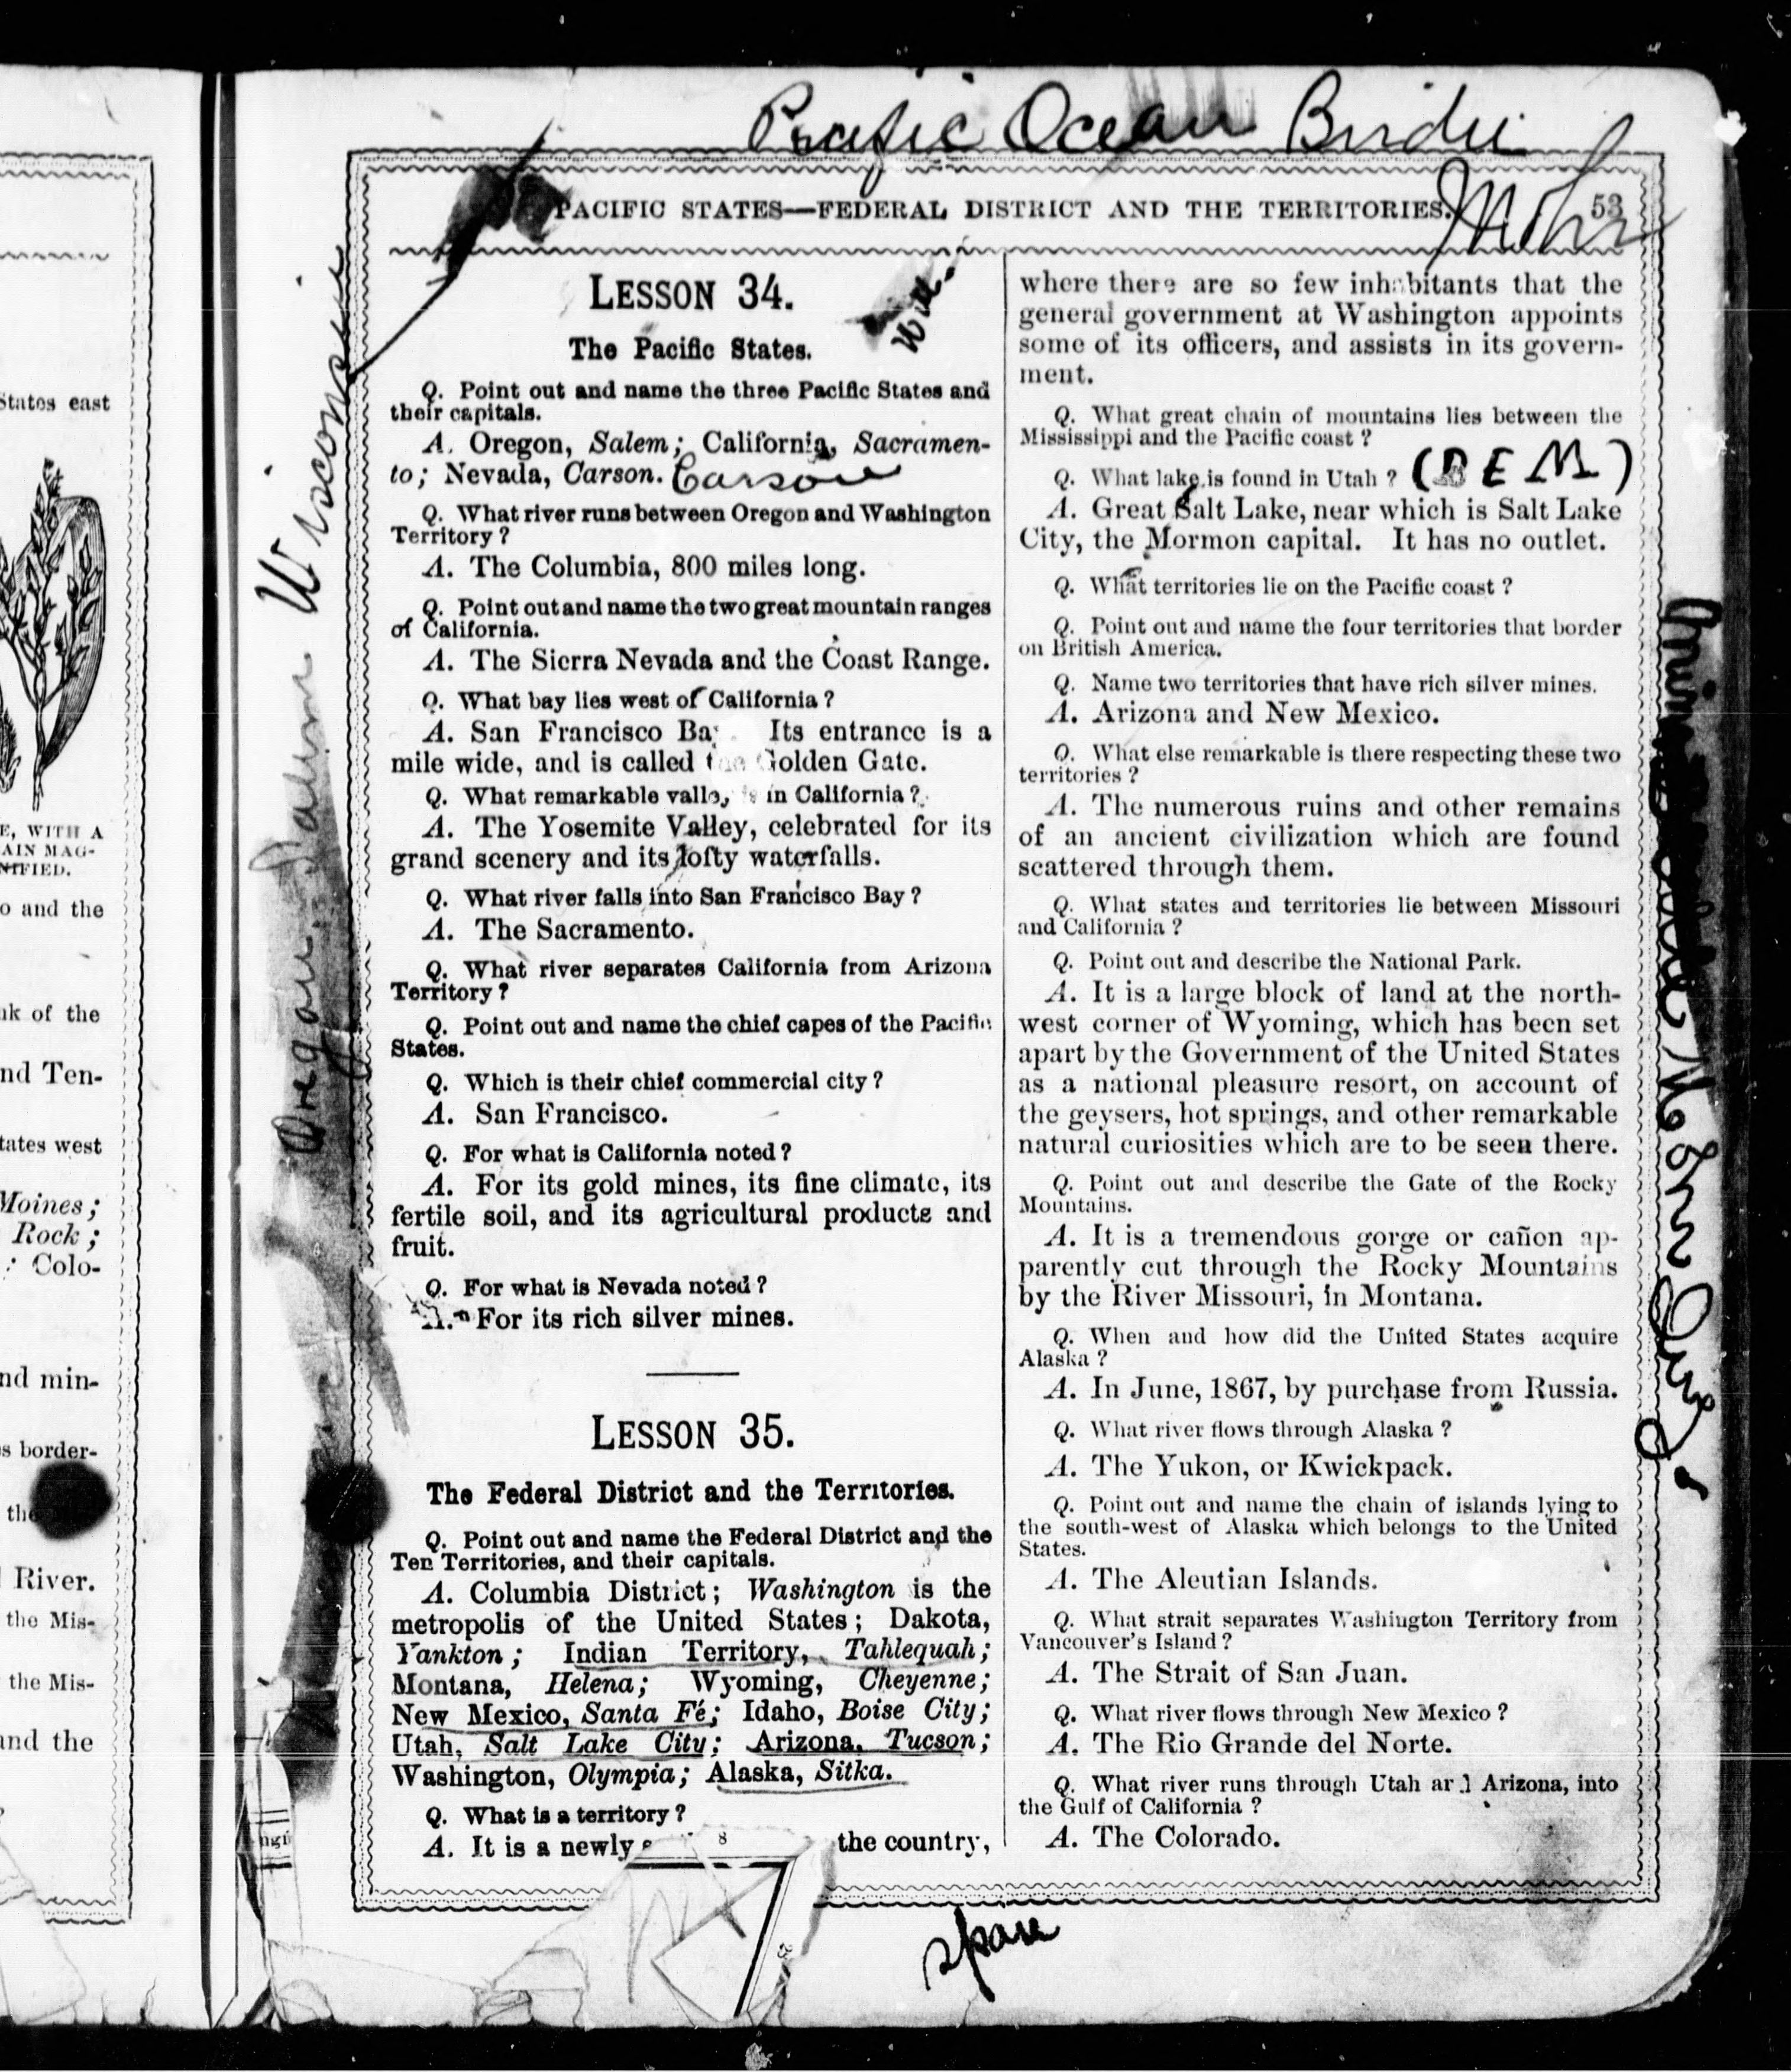 Pacific Ocean Birdie
Mohr
PACIFIC STATES—FEDERAL DISTRICT AND THE TERRITORIES. 53
States east
E, WITH A
AIN MAG-
NIFIED.
o and the
nk of the
nd Ten-
tates west
Moines;
Rock;
; Colo-
nd min-
s border-
the
River.
the Mis-
the Mis-
and the
Wisconsin
Oregon, Salem
LESSON 34.
The Pacific States.
Q. Point out and name the three Pacific States and
their capitals.
A. Oregon, Salem; California, Sacramen-
to; Nevada, Carson. Carson
Q. What river runs between Oregon and Washington
Territory?
A. The Columbia, 800 miles long.
Q. Point out and name the two great mountain ranges
of California.
A. The Sierra Nevada and the Coast Range.
Q. What bay lies west of California?
A. San Francisco Ba Its entrance is a
mile wide, and is called the Golden Gate.
Q. What remarkable valley is in California?
A. The Yosemite Valley, celebrated for its
grand scenery and its lofty waterfalls.
Q. What river falls into San Francisco Bay?
A. The Sacramento.
Q. What river separates California from Arizona
Territory?
Q. Point out and name the chief capes of the Pacific
States.
Q. Which is their chief commercial city?
A. San Francisco.
Q. For what is California noted?
A. For its gold mines, its fine climate, its
fertile soil, and its agricultural products and
fruit.
Q. For what is Nevada noted?
A. For its rich silver mines.
LESSON 35.
The Federal District and the Territories.
Q. Point out and name the Federal District and the
Ten Territories, and their capitals.
A. Columbia District; Washington is the
metropolis of the United States; Dakota,
Yankton; Indian Territory, Tahlequah;
Montana, Helena; Wyoming, Cheyenne;
New Mexico, Santa Fé; Idaho, Boise City;
Utah, Salt Lake City; Arizona, Tucson;
Washington, Olympia; Alaska, Sitka.
Q. What is a territory?
A. It is a newly the country,
8
where there are so few inhabitants that the
general government at Washington appoints
some of its officers, and assists in its govern-
ment.
Q. What great chain of mountains lies between the
Mississippi and the Pacific coast?
Q. What lake is found in Utah? (BEM)
A. Great Salt Lake, near which is Salt Lake
City, the Mormon capital. It has no outlet.
Q. What territories lie on the Pacific coast?
Q. Point out and name the four territories that border
on British America.
Q. Name two territories that have rich silver mines.
A. Arizona and New Mexico.
Q. What else remarkable is there respecting these two
territories?
A. The numerous ruins and other remains
of an ancient civilization which are found
scattered through them.
Q. What states and territories lie between Missouri
and California?
Q. Point out and describe the National Park.
A. It is a large block of land at the north-
west corner of Wyoming, which has been set
apart by the Government of the United States
as a national pleasure resort, on account of
the geysers, hot springs, and other remarkable
natural curiosities which are to be seen there.
Q. Point out and describe the Gate of the Rocky
Mountains.
A. It is a tremendous gorge or cañon ap-
parently cut through the Rocky Mountains
by the River Missouri, in Montana.
Q. When and how did the United States acquire
Alaska?
A. In June, 1867, by purchase from Russia.
Q. What river flows through Alaska?
A. The Yukon, or Kwickpack.
Q. Point out and name the chain of islands lying to
the south-west of Alaska which belongs to the United
States.
A. The Aleutian Islands.
Q. What strait separates Washington Territory from
Vancouver's Island?
A. The Strait of San Juan.
Q. What river flows through New Mexico?
A. The Rio Grande del Norte.
Q. What river runs through Utah and Arizona, into
the Gulf of California?
A. The Colorado.
spare